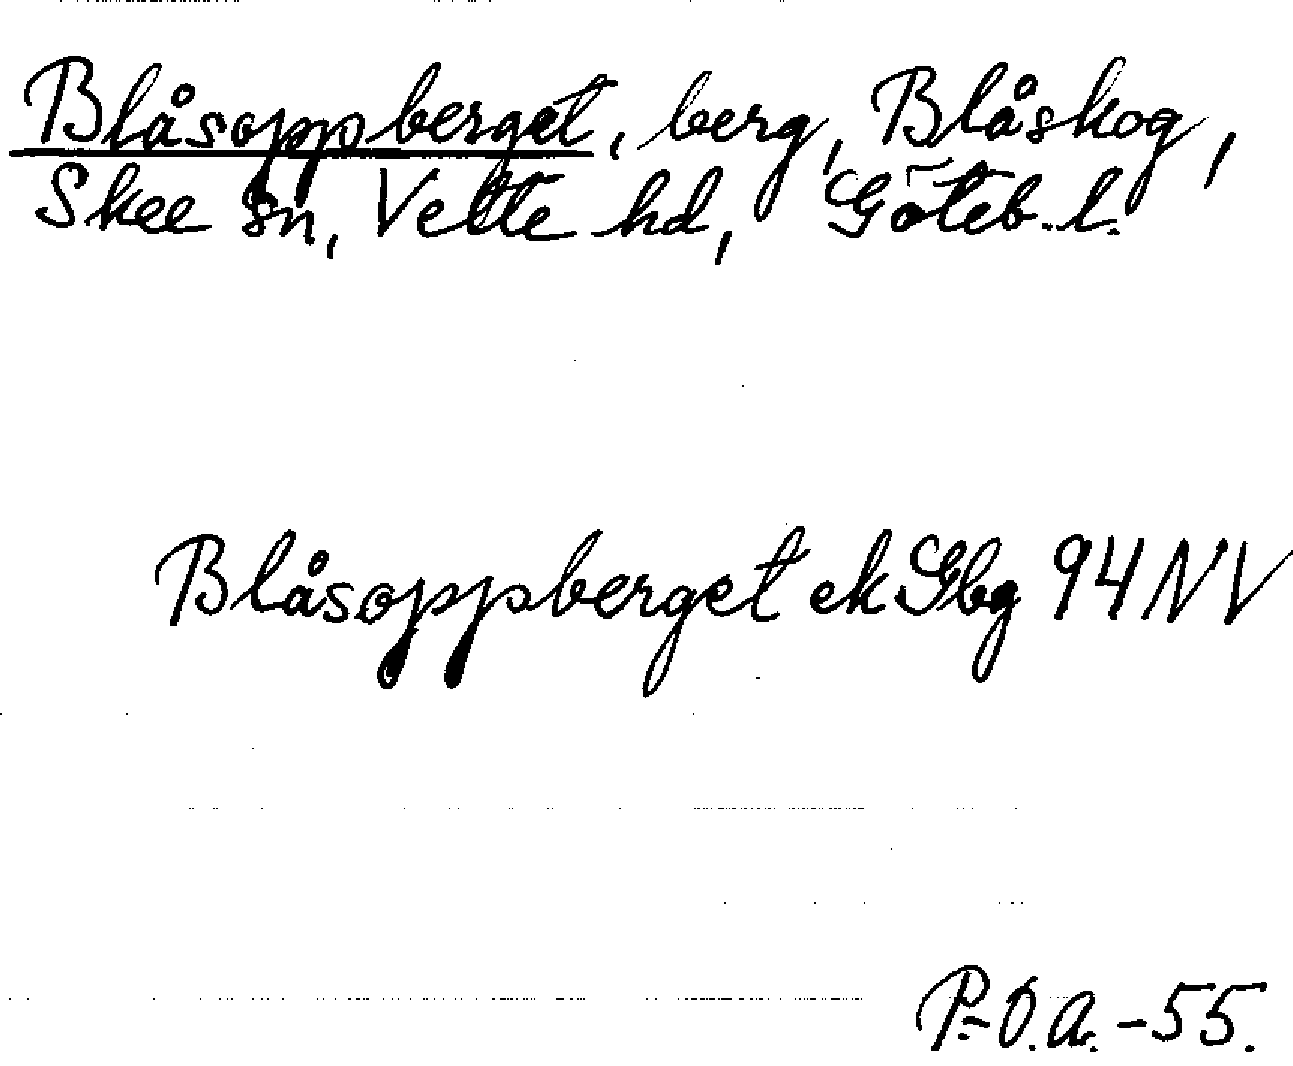 Blåsoppberget, berg, Blåskog,
Skee sn, Vette hd, Göteb. l.
Blåsoppberget ek Gbg 94 NV
P.-O.A. -55.